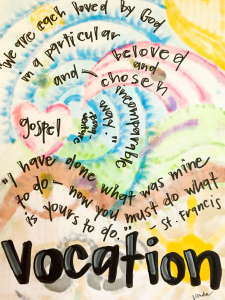 "We are each loved by God
in a particular
and
incomparable
way."
beloved
and
chosen
gospel
"I have done what was mine
to do - now you must do what
is yours to do."
- St. Francis
Vocation